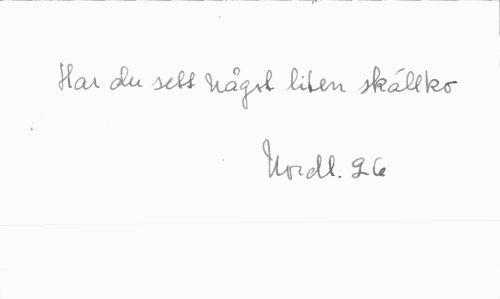 Har du sett någst liten skállko
Nordl. 26